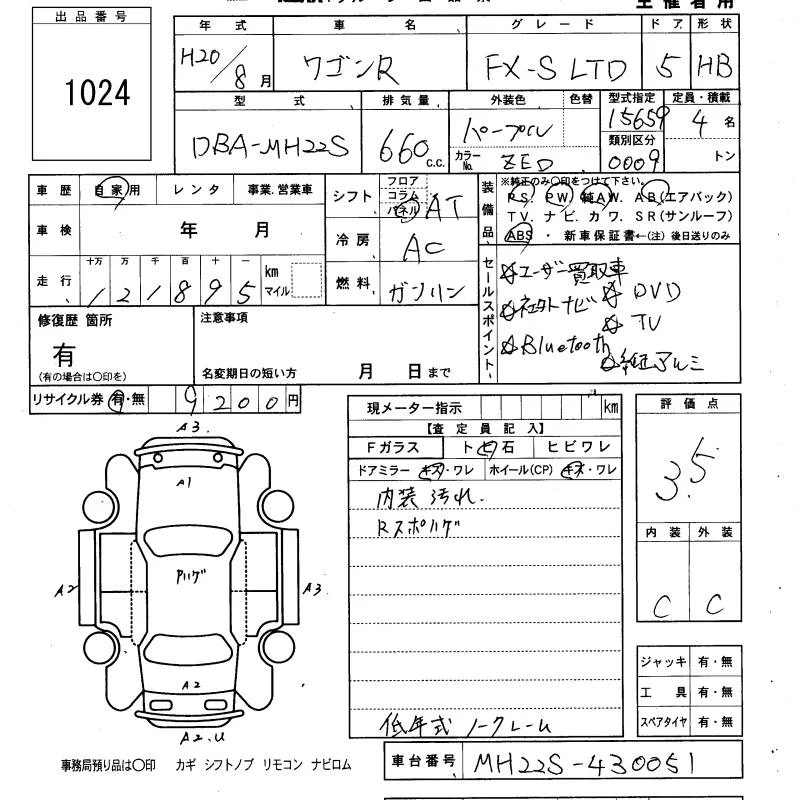 出品番号
1024
年式 車名 グレード ドア 形状
H20/8月 ワゴンR FX-S LTD 5 HB
型式 排気量 外装色 色替 型式指定 定員・積載
DBA-MH22S 660 c.c. パープル 15659 4名
カラーNo. ZED 類別区分 0009 トン
車歴 自家用 レンタ 事業.営業車
シフト フロア コラム パネル AT
装備品 ※純正のみ〇印をつけて下さい。
PS. PW. 純AW. AB(エアバック)
TV. ナビ. カワ. SR(サンルーフ)
ABS ・ 新車保証書←(注) 後日送りのみ
車検 年 月
冷房 AC
走行 十万 万 千 百 十 一 km マイル
121895
燃料 ガソリン
セールスポイント
☆ユーザー買取車
☆社外ナビ ☆DVD
☆TV
☆Bluetooth
☆純正アルミ
修復歴 箇所
有
(有の場合は〇印を)
注意事項
名変期日の短い方 月 日まで
リサイクル券 有・無 9200円
現メーター指示 km
【査定員記入】
Fガラス トビ石 ヒビワレ
ドアミラー キズ・ワレ ホイール(CP) キズ・ワレ
内装 汚れ.
Rスポハゲ
低年式 ノークレーム
評価点
3.5
内装 外装
C C
A3.
A1
Pハゲ
A2 A3
A2
A2.U
ジャッキ 有・無
工具 有・無
スペアタイヤ 有・無
事務局預り品は〇印 カギ シフトノブ リモコン ナビロム
車台番号 MH22S-430051